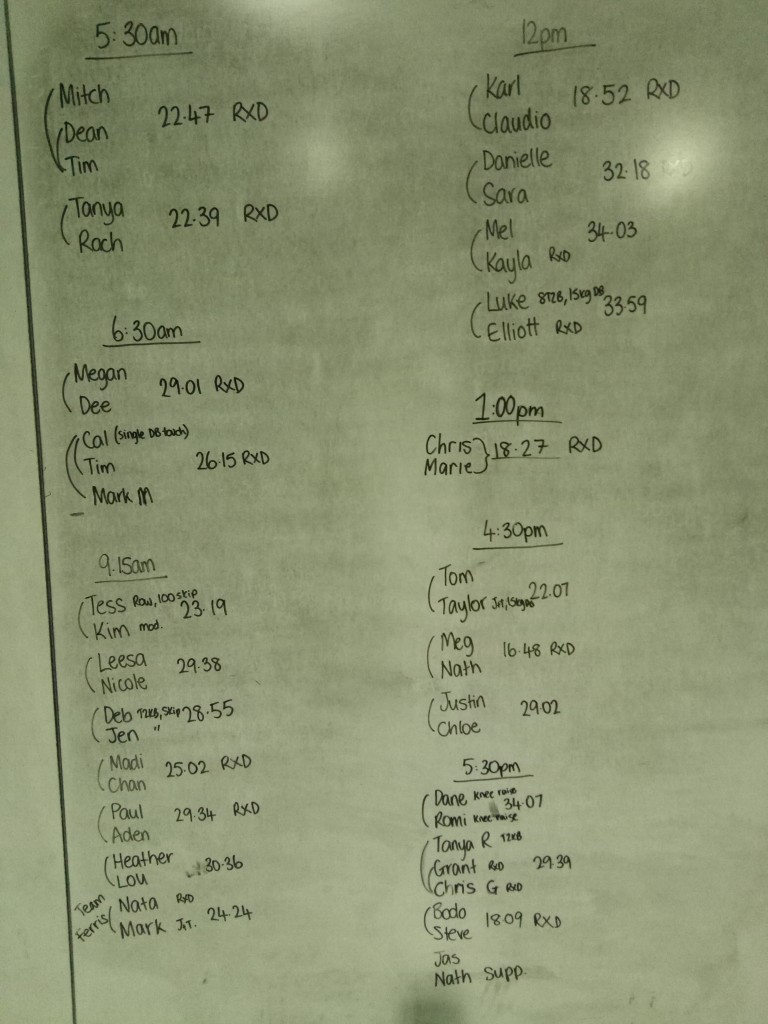 5:30am
Mitch
22.47 RXD
Dean
Tim
Tanya
22.39 RXD
Rach
6:30am
Megan
29.01 RXD
Dee
Cal (single DB touch)
Tim 26.15 RXD
Mark M
9.15am
Tess Row, 100 skip
23.19
Kim mod.
Leesa
29.38
Nicole
Deb 12KB, skip 28.55
Jen "
Madi
25.02 RXD
Chan
Paul
29.34 RXD
Aden
Heather
30.36
Lou
Team Ferris
Nata RXD
24.24
Mark Jnr.
12pm
Karl
18.52 RXD
Claudio
Danielle
32.18 RXD
Sara
Mel
34.03
Kayla RXD
Luke 8T2B, 15kg DB
33.59
Elliott RXD
1:00pm
Chris
18.27 RXD
Marie
4:30pm
Tom
22.07
Taylor Jnr, 15kg DB
Meg
16.48 RXD
Nath
Justin
29.02
Chloe
5:30pm
Dane knee raise
34.07
Romi knee raise
Tanya R 12KB
Grant RXD 29.39
Chris G RXD
Bodo
18.09 RXD
Steve
Jas
Nath Supp.